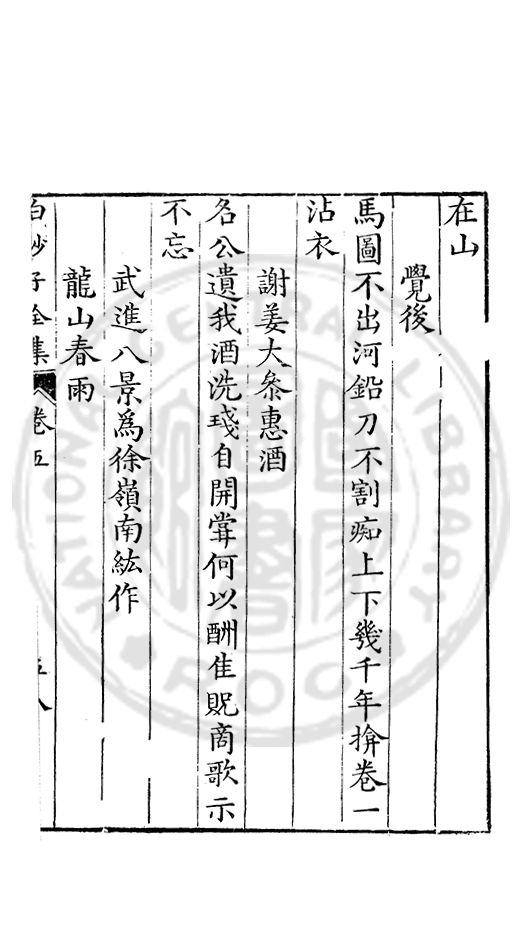 在山
覺後
馬圖不出河鉛刀不割痴上下幾千年揜卷一
沾衣
謝姜大參惠酒
名公遺我酒洗琖自開甞何以酬佳貺商歌示
不忘
武進八景爲徐嶺南紘作
龍山春雨
白沙子全集 卷五
NATIONAL CENTRAL LIBRARY